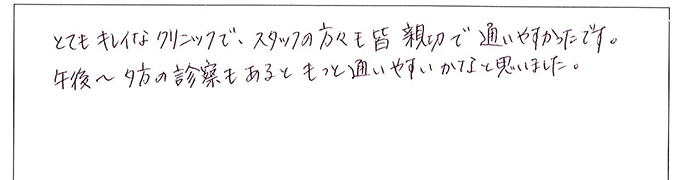 とてもキレイなクリニックで、スタッフの方々も皆親切で通いやすかったです。
午後～夕方の診察もあるともっと通いやすいかなと思いました。